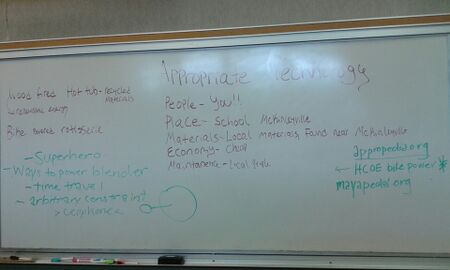 Appropriate Technology
Wood fired Hot tub - recycled materials
energy
Bike Powered rotisserie
People - You!!
Place - School McKinleyville
Materials - Local materials, Found near McKinleyville
Economy - Cheap
Maintenance - Local People
- Superhero
- Ways to power blender
- time travel
- arbitrary constraint
> cellphone
appropedia.org
← HCOE bike power *
mayapedal.org